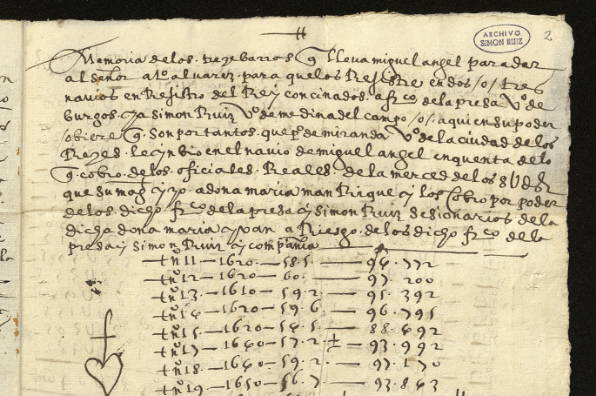 ARCHIVO
SIMON RUIZ
2
Memoria de los treze barros q lleva miguel angel para dar
al señor alº alvarez para que los Registre en dos /o/ tres
navios en Registro del Rey con cinados a frco de la presa vº de
burgos y a simon Ruiz vº de medina del campo /o/ a quien su poder
/obiere q son por tantos que pº de miranda vº de la ciudad de los
Reyes le ynbio en el navio de miguel angel en quenta de lo
q cobro de los oficiales Reales de la merced de los
que su magd yzo a dona maria manRirique y los cobro por poder
de los dicho frco de la presa y simon Ruiz sesionarios de la
dicha dona maria y van a Riesgo de los dicho frco de la
presa y simon Ruiz y compañia
tnº 11 — 1620 — 58.5 — 94.772
tnº 12 — 1620 — 60. — 97.200
tnº 13 — 1610 — 59.2 — 95.392
tnº 14 — 1620 — 59.6 — 96.795
tnº 15 — 1620 — 54.5 — 88.692
tnº 17 — 1640 — 57.2 — 93.992
tnº 18 — 1640 — 59.2 — 97.170
tnº 19 — 1650 — 56.7 — 93.843